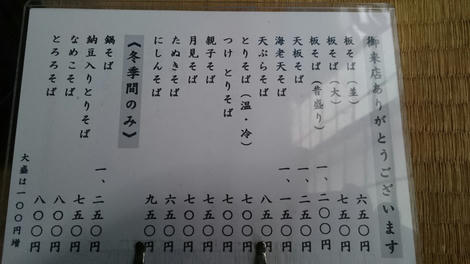 御来店ありがとうございます
板そば（並） 六五〇円
板そば（大） 七五〇円
板そば（昔盛り） 一、二〇〇円
天板そば 一、二五〇円
海老天そば 一、一五〇円
天ぷらそば 八五〇円
とりそば（温・冷） 七〇〇円
つけ とりそば 七〇〇円
親子そば 七五〇円
月見そば 七〇〇円
たぬきそば 六五〇円
にしんそば 九五〇円
《冬季間のみ》
鍋そば 一、二五〇円
納豆入りとりそば 七五〇円
なめこそば 八〇〇円
とろろそば 八〇〇円
大盛は一〇〇円増